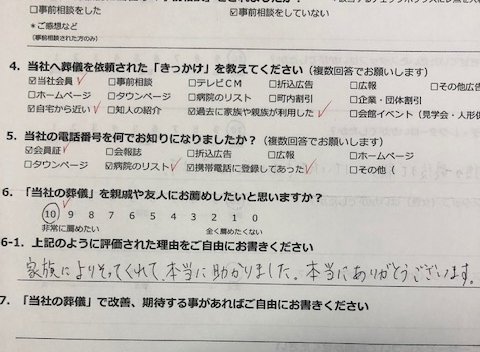 ☐事前相談をした ☑事前相談をしていない
*ご感想など
(事前相談された方のみ)
4. 当社へ葬儀を依頼された「きっかけ」を教えてください（複数回答でお願いします）
☑当社会員 ☐事前相談 ☐テレビＣＭ ☐折込広告 ☐広報 ☐その他広告
☐ホームページ ☐タウンページ ☐病院のリスト ☐町内割引 ☐企業・団体割引
☑自宅から近い ☐知人の紹介 ☑過去に家族や親族が利用した ☐会館イベント（見学会・人形供
5. 当社の電話番号を何でお知りになりましたか？（複数回答でお願いします）
☑会員証 ☐会報誌 ☐折込広告 ☐広報 ☐ホームページ
☐タウンページ ☑病院のリスト ☑携帯電話に登録してあった ☐その他（
6. 「当社の葬儀」を親戚や友人にお薦めしたいと思いますか？
10 9 8 7 6 5 4 3 2 1 0
非常に薦めたい 全く薦めたくない
6-1. 上記のように評価された理由をご自由にお書きください
家族によりそってくれて、本当に助かりました。本当にありがとうございます。
7. 「当社の葬儀」で改善、期待する事があればご自由にお書きください